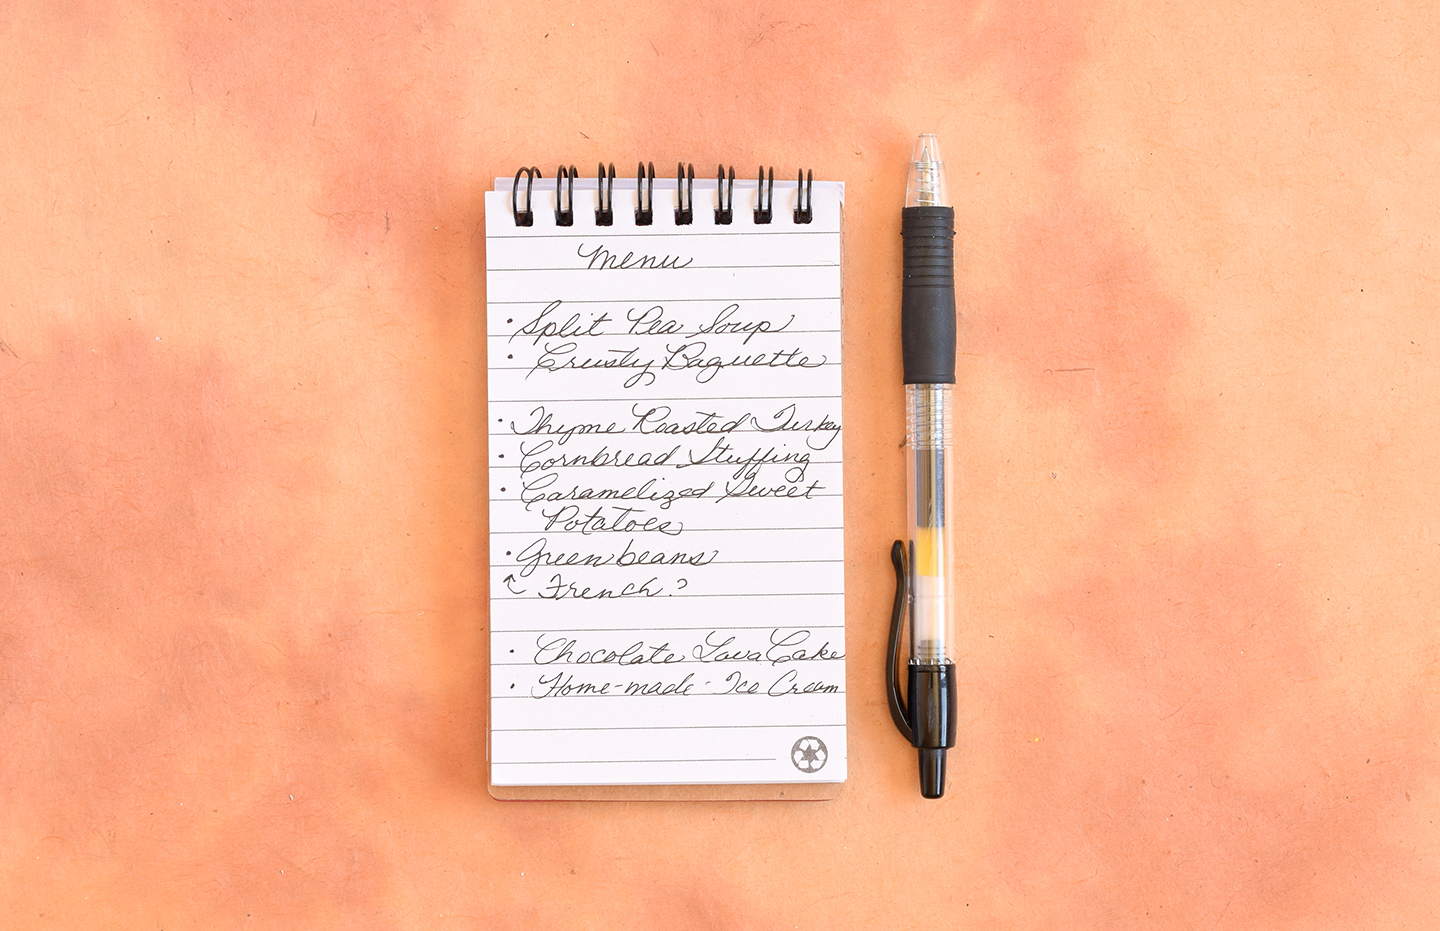 Menu
• Split Pea Soup
• Crusty Baguette
• Thyme Roasted Turkey
• Cornbread Stuffing
• Caramelized Sweet
Potatoes
• Green beans
French?
• Chocolate Lava Cake
• Home-made Ice Cream